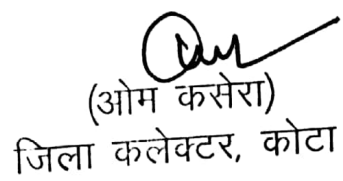 (ओम कसेरा)
जिला कलेक्टर, कोटा